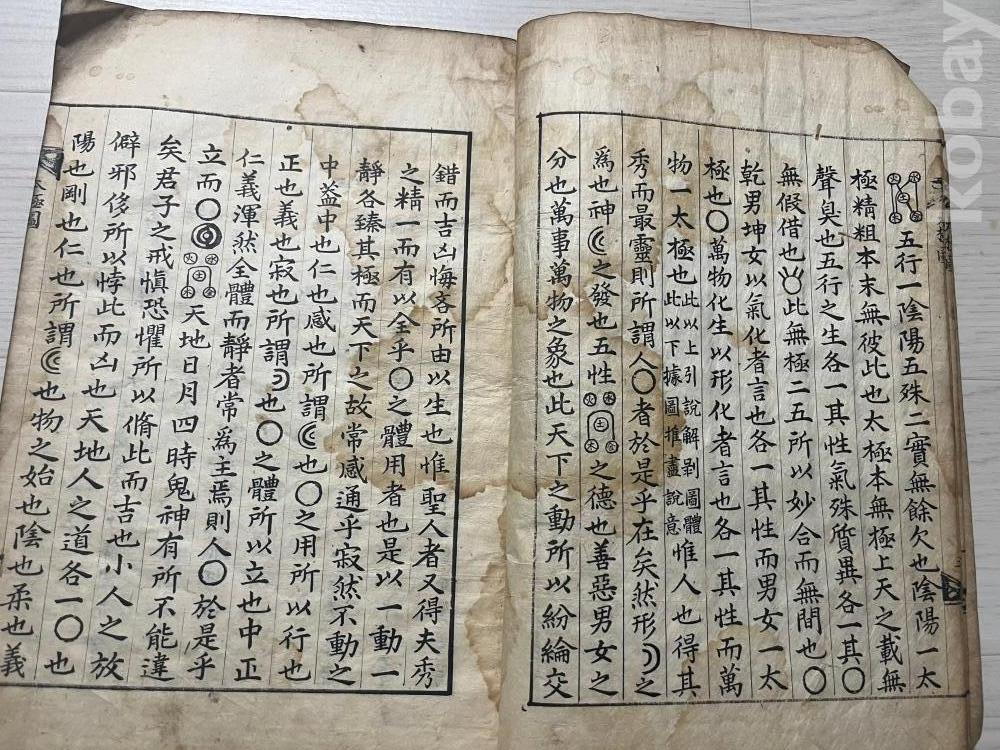 火水木金五行一陰陽五殊二實無餘欠也陰陽一太
極精粗本末無彼此也太極本無極上天之載無
聲臭也五行之生各一其性氣殊質異各一其〇
無假借也此無極二五所以妙合而無間也〇
乾男坤女以氣化者言也各一其性而男女一太
極也〇萬物化生以形化者言也各一其性而萬
物一太極也此以上引說解剥圖體此以下據圖推盡說意惟人也得其
秀而最靈則所謂人〇者於是乎在矣然形☽之
爲也神☾之發也五性水火土金木之德也善惡男女之
分也萬事萬物之象也此天下之動所以紛綸交
錯而吉凶悔吝所由以生也惟聖人者又得夫秀
之精一而有以全乎〇之體用者也是以一動一
靜各臻其極而天下之故常感通乎寂然不動之
中盖中也仁也感也所謂☾也〇之用所以行也
正也義也寂也所謂☽也〇之體所以立也中正
仁義渾然全體而靜者常爲主焉則人〇於是乎
立而〇◎火水土木金天地日月四時鬼神有所不能違
矣君子之戒愼恐懼所以脩此而吉也小人之放
僻邪侈所以悖此而凶也天地人之道各一〇也
陽也剛也仁也所謂☾也物之始也陰也柔也義
太極圖
kobay